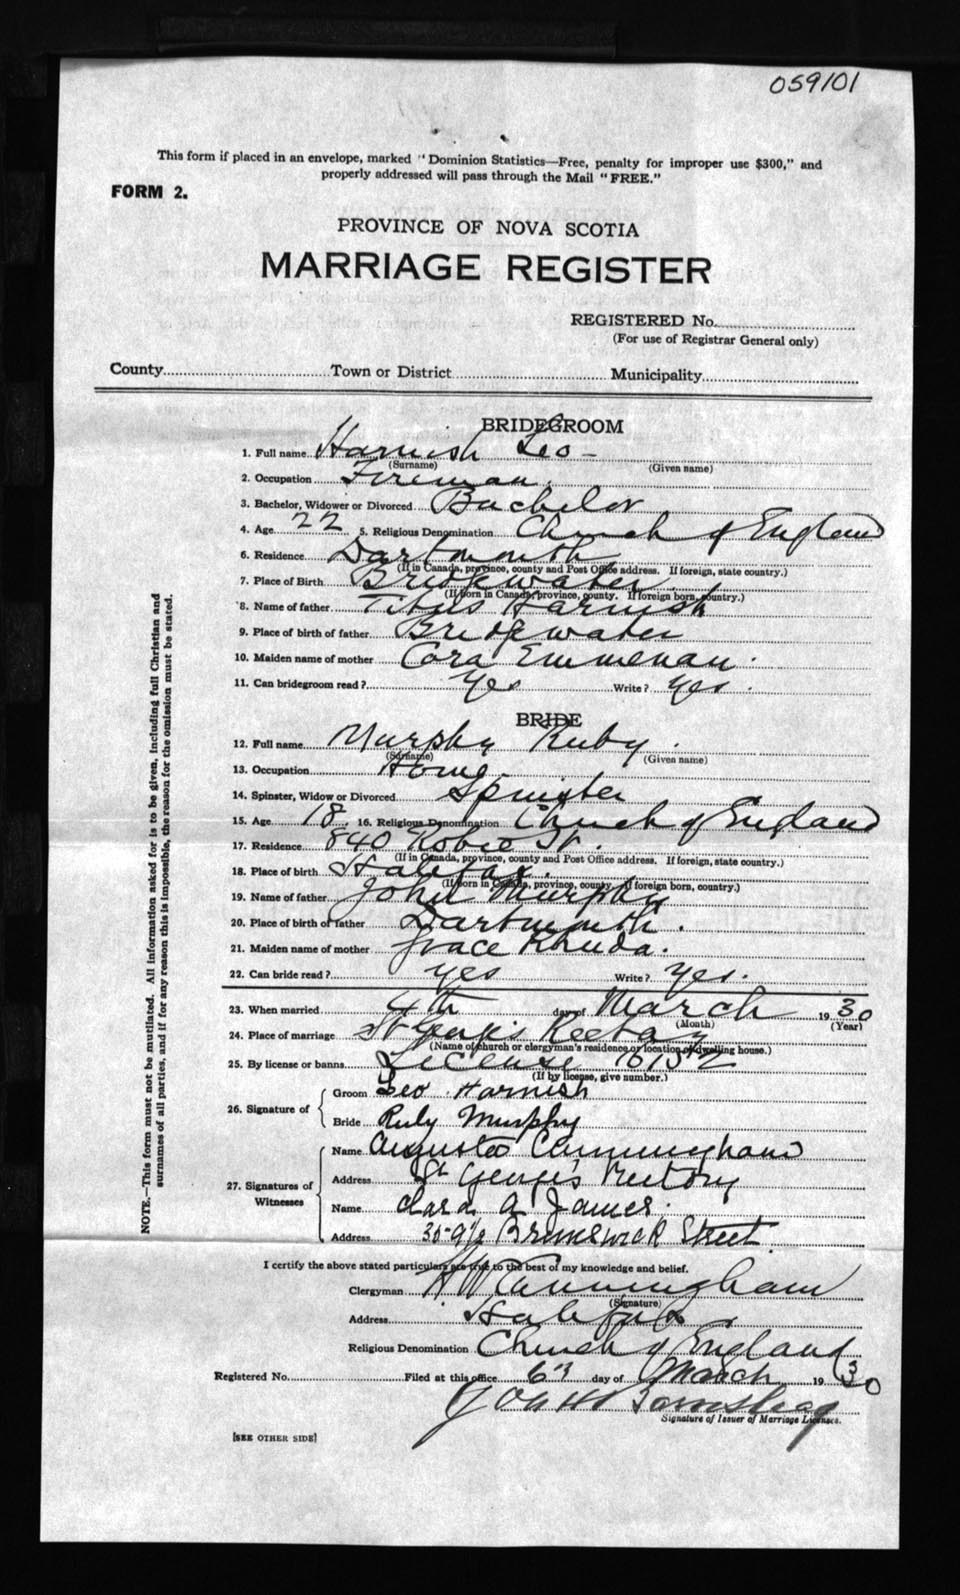 059101
This form if placed in an envelope, marked "Dominion Statistics—Free, penalty for improper use $300," and
properly addressed will pass through the Mail "FREE."
FORM 2.
PROVINCE OF NOVA SCOTIA
MARRIAGE REGISTER
REGISTERED No.
(For use of Registrar General only)
County Town or District Municipality
BRIDEGROOM
1. Full name Harnish Leo
(Surname) (Given name)
2. Occupation Fireman
3. Bachelor, Widower or Divorced Bachelor
4. Age 22 5. Religious Denomination Church of England
6. Residence Dartmouth
(If in Canada, province, county and Post Office address. If foreign, state country.)
7. Place of Birth Bridgwater
(If born in Canada, province, county. If foreign born, country.)
8. Name of father Titus Harnish
9. Place of birth of father Bridgwater
10. Maiden name of mother Cora Emmenau
11. Can bridegroom read? Yes Write? Yes.
BRIDE
12. Full name Murphy Ruby.
(Surname) (Given name)
13. Occupation Home
14. Spinster, Widow or Divorced Spinster
15. Age 18 16. Religious Denomination Church of England
17. Residence 840 Robie St.
(If in Canada, province, county and Post Office address. If foreign, state country.)
18. Place of birth Halifax
(If born in Canada, province, county. If foreign born, country.)
19. Name of father John Murphy
20. Place of birth of father Dartmouth.
21. Maiden name of mother Grace
22. Can bride read? Yes Write? Yes.
23. When married 4th day of March 1930
(Month) (Year)
24. Place of marriage St George's Rectory
(Name of church or clergyman's residence or location of dwelling house.)
25. By license or banns License
(If by license, give number.)
26. Signature of Groom Leo Harnish
Bride Ruby Murphy
27. Signatures of Witnesses Name Augusta Cunningham
Address St George's Rectory
Name Clara A James.
Address Brunswick Street
I certify the above stated particulars are true to the best of my knowledge and belief.
Clergyman H W Cunningham
(Signature)
Address Halifax
Religious Denomination Church of England
Registered No. Filed at this office day of March 1930
Signature of Issuer of Marriage Licenses.
[SEE OTHER SIDE]
NOTE.—This form must not be mutilated. All information asked for is to be given, including full Christian and
surnames of all parties, and if for any reason this is impossible, the reason for the omission must be stated.